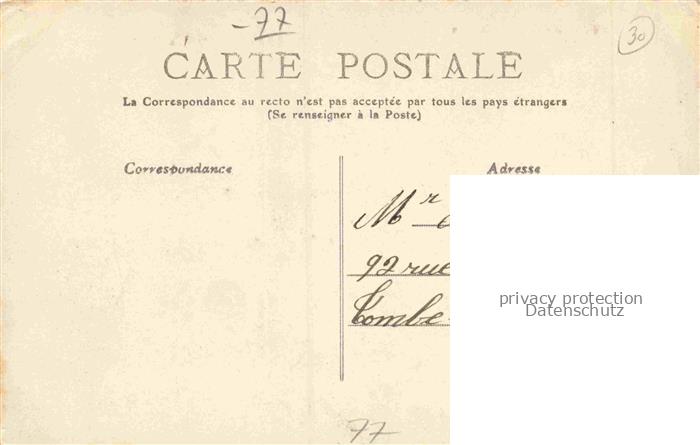 -77
30
CARTE POSTALE
La Correspondance au recto n'est pas acceptée par tous les pays étrangers
(Se renseigner à la Poste)
Correspondance
Adresse
Mr
92 rue
Tombe
privacy protection
Datenschutz
77